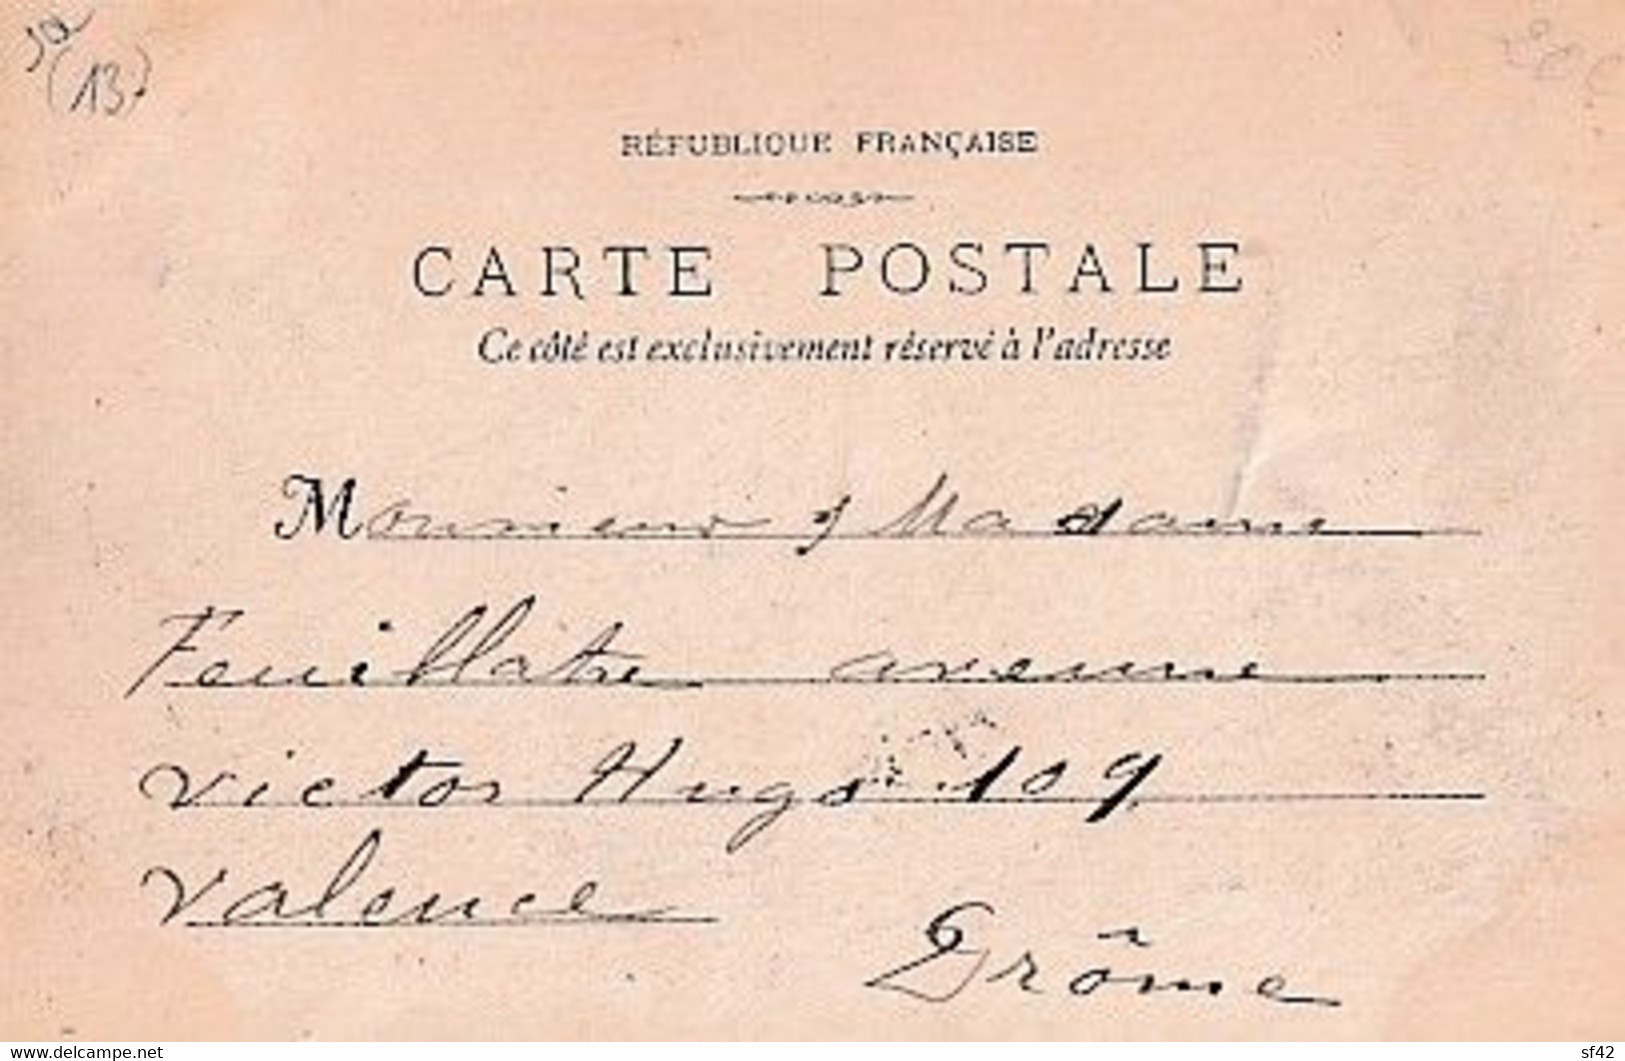 (13)
RÉPUBLIQUE FRANÇAISE
CARTE POSTALE
Ce côté est exclusivement réservé à l'adresse
Monsieur & Madame
Feuillatre avenue
Victor Hugo 109
Valence
Drôme
www.delcampe.net
sf42